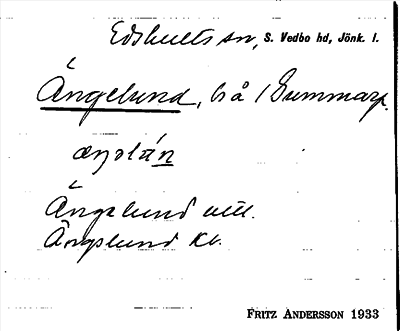 Edshults sn, S. Vedbo hd, Jönk. l.
Ängelund, bå / Summarp.
Ängslund utt.
Ängslund Kb.
FRITZ ANDERSSON 1933